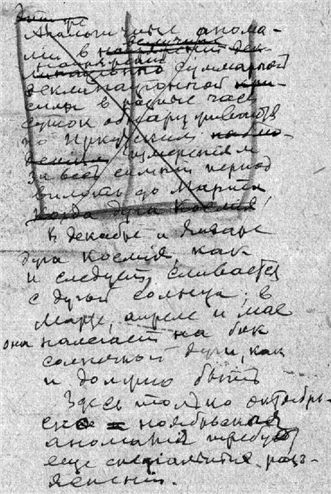 Аналогичные анома-
лии в
суммарной
деклинационной
в разные часы
суток обнаруживаются
по Иркутским
измерениям
за весь зимний период
вплоть до Марта
когда дуга Космия!
В декабре и Январе
дуга Космия, как
и следует, сливается
с дугой солнца; в
Марте, апреле и мае
она налегает на бок
солнечной дуги, как
и должно быть
Здесь только октябрь-
ско - ноябрьская
аномалия требует
еще специальных разъ-
яснений.